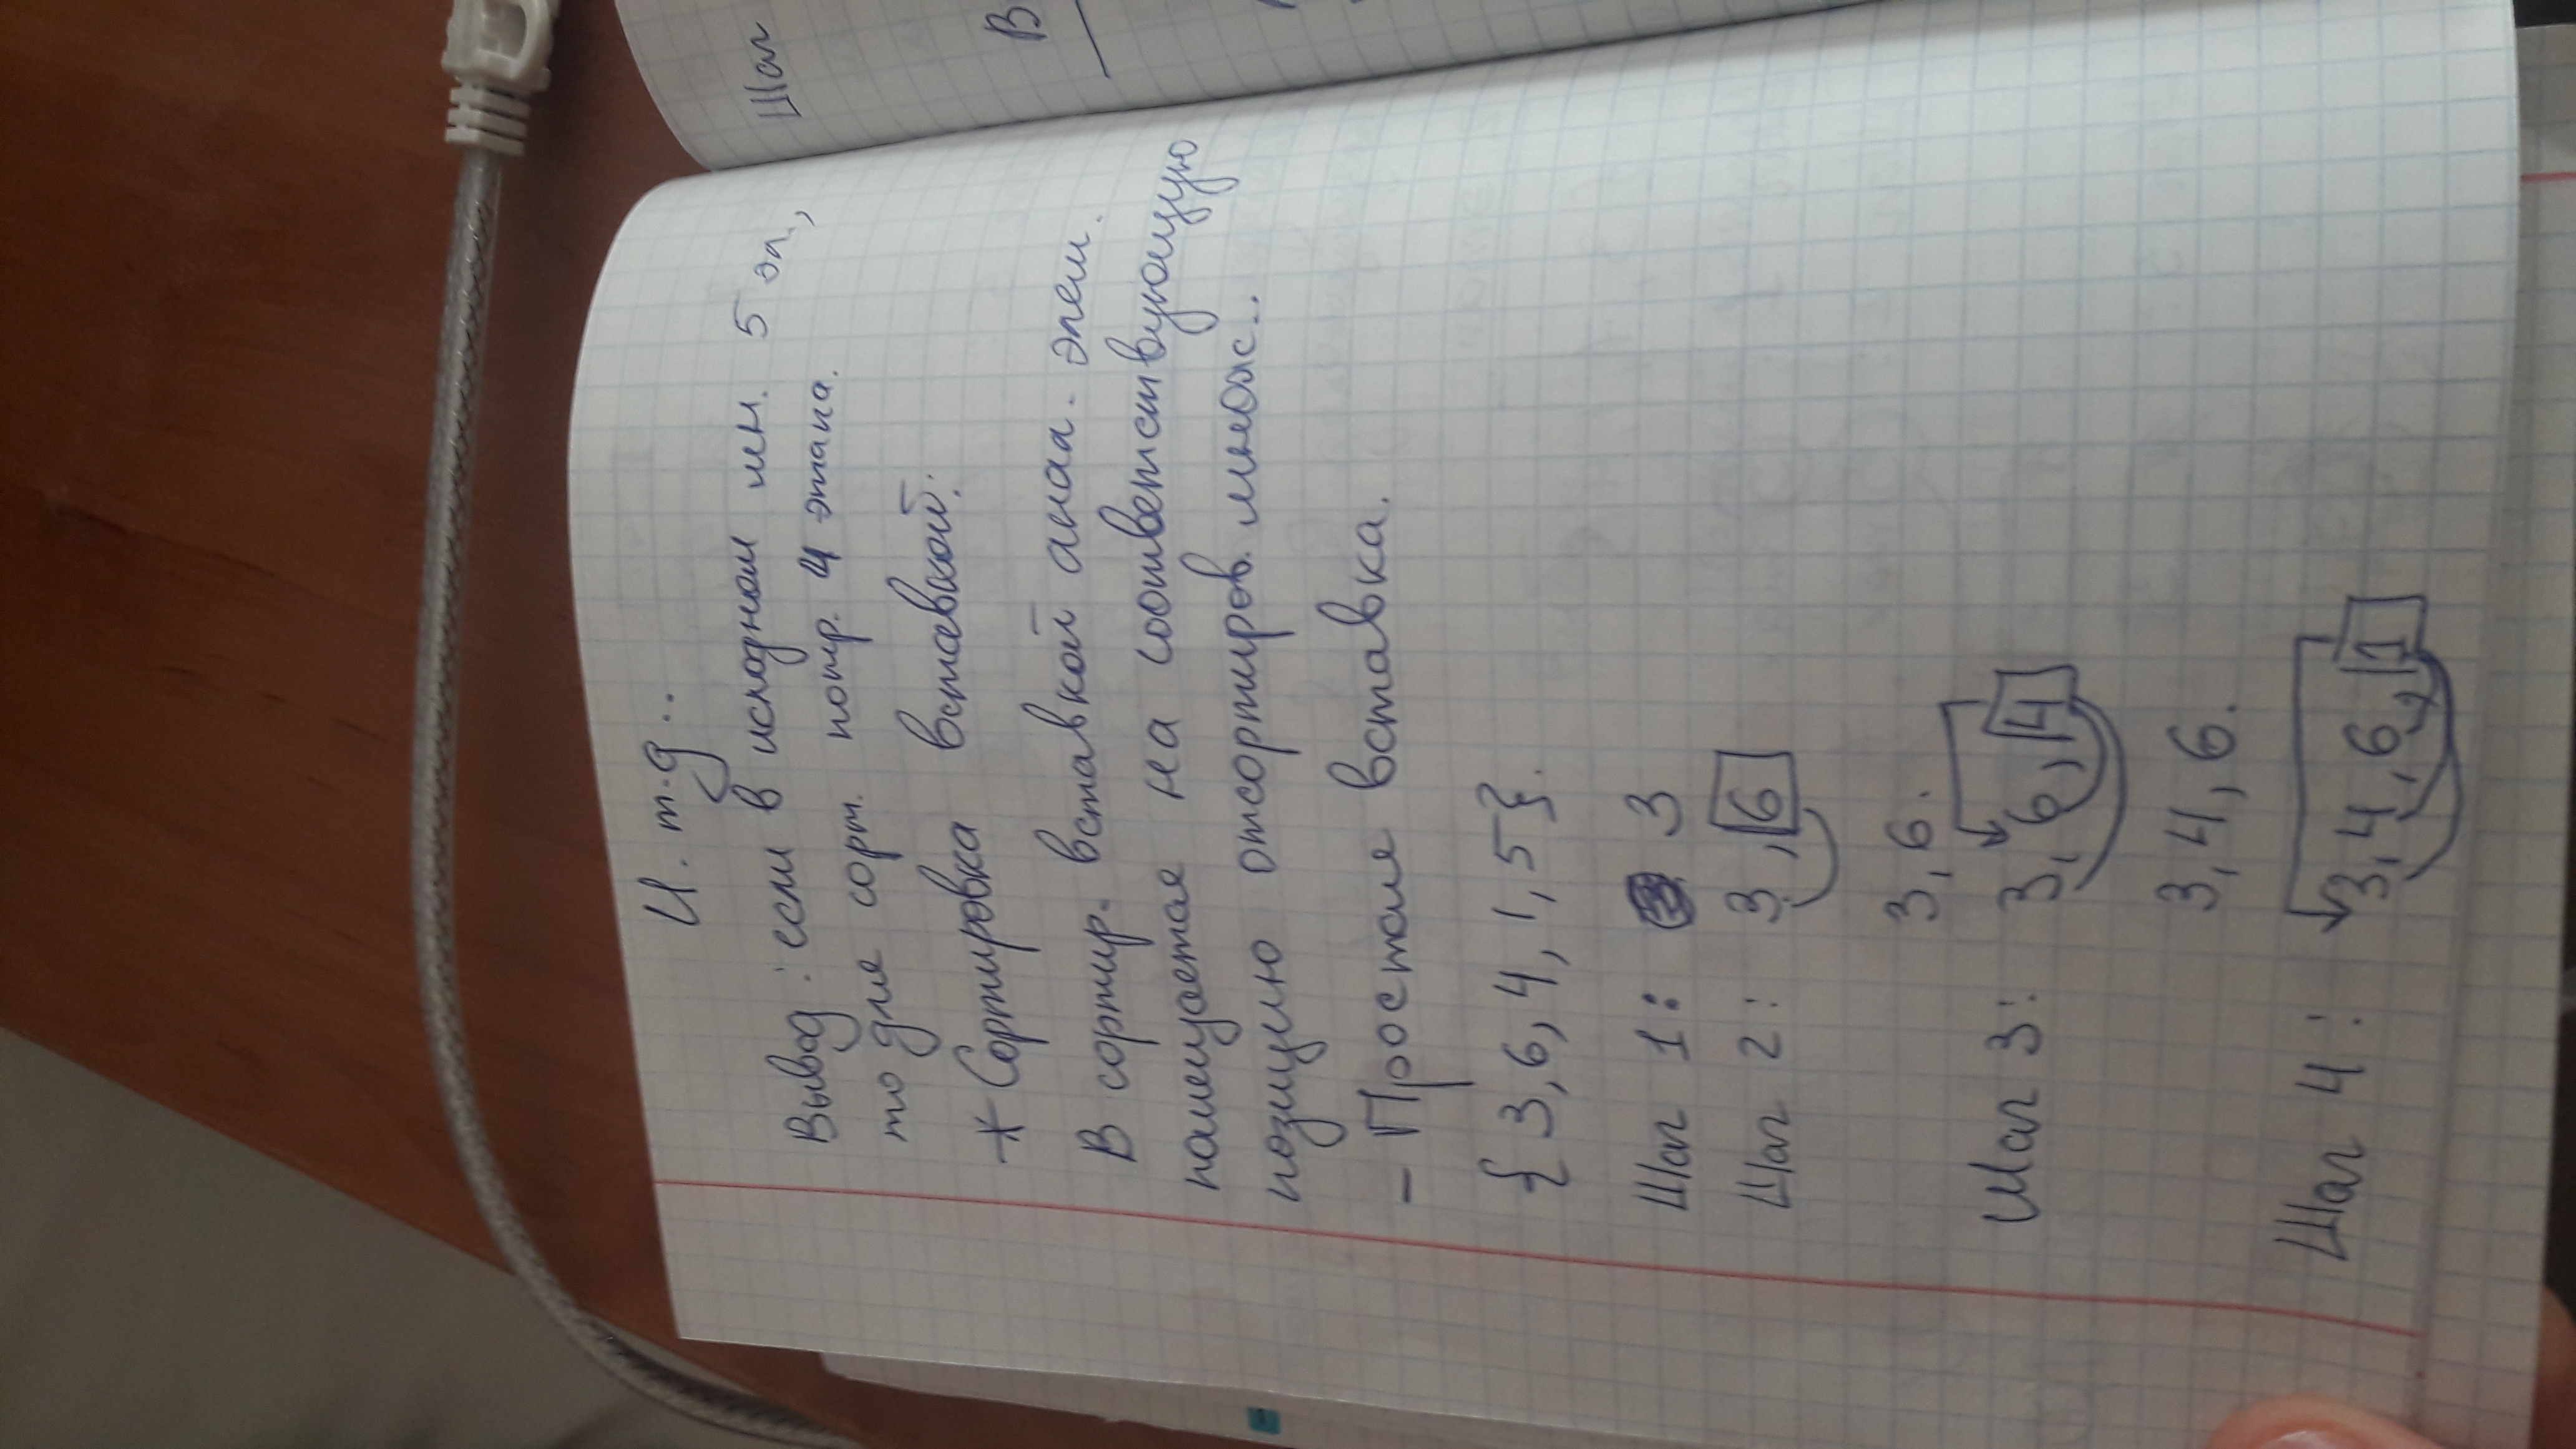 И. т.д..
Вывод: если в исходном мн. 5 эл.,
то для сорт. потр. 4 этапа.
* Сортировка вставкой:
В сортир. вставкой анал. элем.
помещается на соответствующую
позицию отсортиров. множ..
- Простая вставка.
{3, 6, 4, 1, 5}.
Шаг 1: 3
Шаг 2: 3, 6
3, 6.
Шаг 3: 3, 6, 4
3, 4, 6.
Шаг 4: 3, 4, 6, 1
Шаг
В